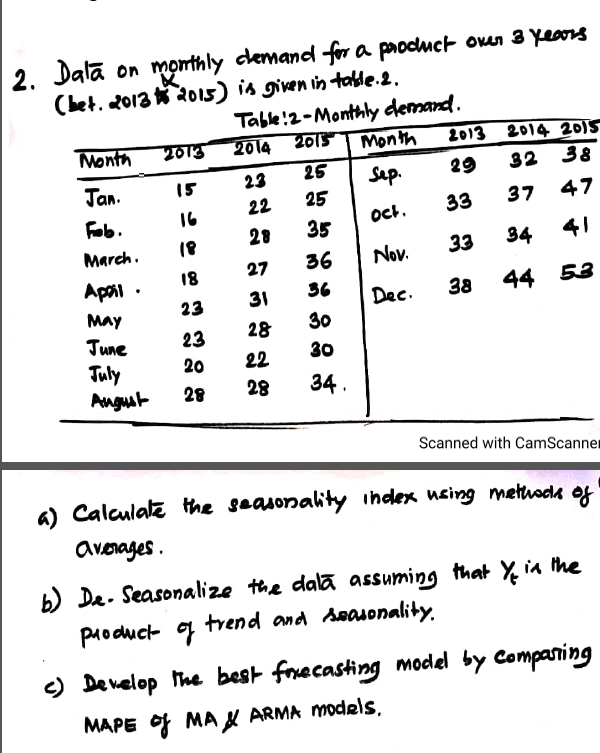 2. Data on monthly demand for a product over 3 years
(bet. 2013 & 2015) is given in table.2.
Table:2-Monthly demand.
Month 2013 2014 2015 Month 2013 2014 2015
Jan. 15 23 25 Sep. 29 32 38
Feb. 16 22 25 Oct. 33 37 47
March. 18 28 35 Nov. 33 34 41
April. 18 27 36 Dec. 38 44 53
May 23 31 36
June 23 28 30
July 20 22 30
August 28 28 34.
Scanned with CamScanner
a) Calculate the seasonality index using methods of
averages.
b) De-Seasonalize the data assuming that Yt is the
product of trend and seasonality.
c) Develop the best forecasting model by comparing
MAPE of MA & ARMA models.